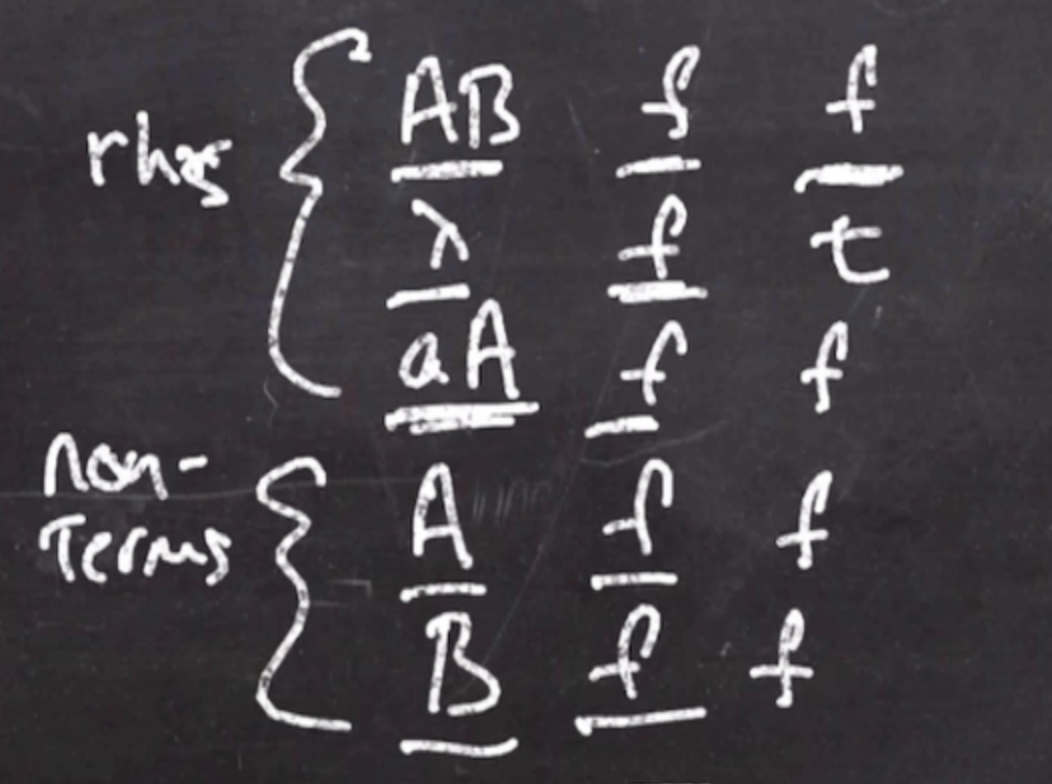 rhs { AB f f
λ f t
aA f f
non-
Terms { A f f
B f f